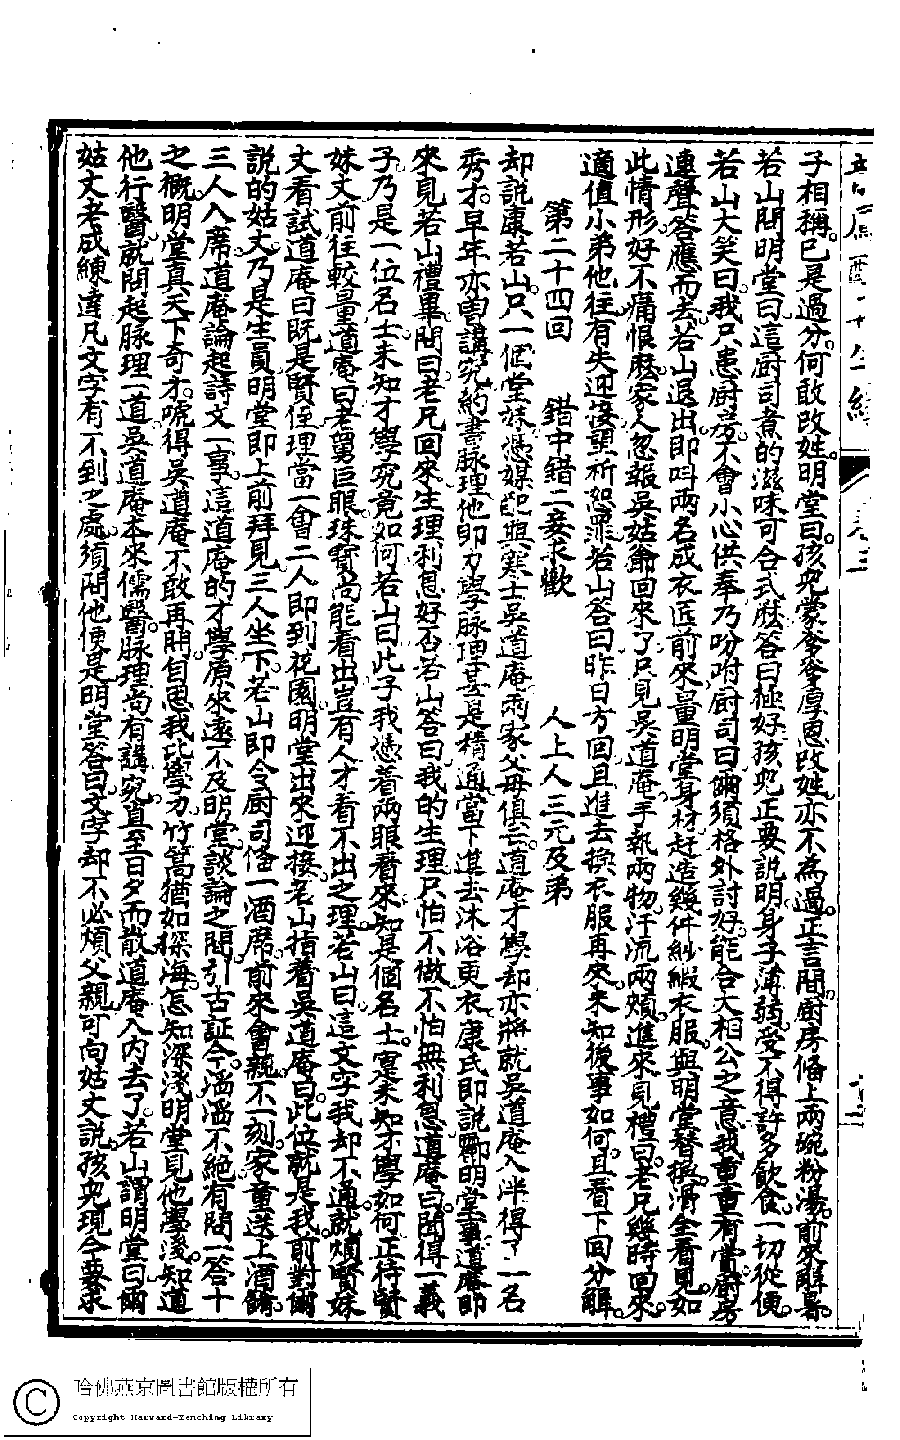 子相稱。已是過分。何敢改姓。明堂曰。孩兒蒙爹爹厚恩。改姓亦不爲過。正言間。厨房俻上兩碗粉湯。前來解暑。
若山問明堂曰。這厨司煮的滋味可合式庅。答曰極好。孩兒正要説明。身子薄弱。受不得許多飲食。一切從便。
若山大笑曰。我只患厨房不會小心供奉。乃吩咐厨司曰。爾須格外討好。能合大相公之意。我重重有賞。厨房
連聲答應而去。若山退出。即叫兩名成衣匠前來。量明堂身材。赶造幾件紗緞衣服。與明堂替換。滑全看見。如
此情形。好不痛恨。庅家人忽報吳姑爺回來了。只見吳道庵手執兩物。汗流兩頰。進來見禮曰。老兄幾時回來。
適值小弟他往。有失迎接。望祈恕罪。若山答曰。昨日方回。且進去換衣服再來。未知後事如何。且看下回分解。
第二十四回 錯中錯二妾求歡 人上人三元及第
却説康若山。只一個堂妹。憑媒配與寒士吳道庵。兩家父母俱亡。道庵才學却亦將就。吳道庵入泮得了一名
秀才。早年亦曽講究約書脉理。他即力學脉理。甚是精通。當下進去沐浴更衣。康氏即説酈明堂事。道庵即
來見若山。禮畢。問曰。老兄回來。生理利息好否。若山答曰。我的生理只怕不做。不怕無利息。道庵曰。聞得一義
子。乃是一位名士。未知才學究竟如何。若山曰。此子我憑着兩眼看來。知是個名士。寔未知才學如何。正待賢
妹丈前往較量。道庵曰。老舅巨眼。珠寶尚能看出。豈有人才看不出之理。若山曰。這文字我却不通。就煩賢妹
丈看試。道庵曰。既是賢侄。理當一會。二人即到花園。明堂出來迎接。若山指着吳道庵曰。此位就是我前對爾
説的姑丈。乃是生員。明堂即上前拜見。三人坐下。若山即令厨司俻一酒席。前來會親。不一刻。家童送上酒餚。
三人入席。道庵論起詩文一事。這道庵的才學原來遠不及明堂。談論之間。引古証今。滔滔不絶。有問一答十
之概。明堂真天下奇才。唬得吳道庵不敢再開。自思我此學力。竹篙猶如探海。怎知深淺。明堂見他學淺。知道
他行醫。就問起脉理一道。吳道庵本來儒醫。脉理尚有講究。直至日夕而散。道庵入内去了。若山謂明堂曰。爾
姑丈老成練達。凡文字有不到之處。須問他便是。明堂答曰。文字却不必煩父親。可向姑丈説。孩兒現今要求
哈佛燕京圖書館版權所有
Copyright Harvard-Yenching Library